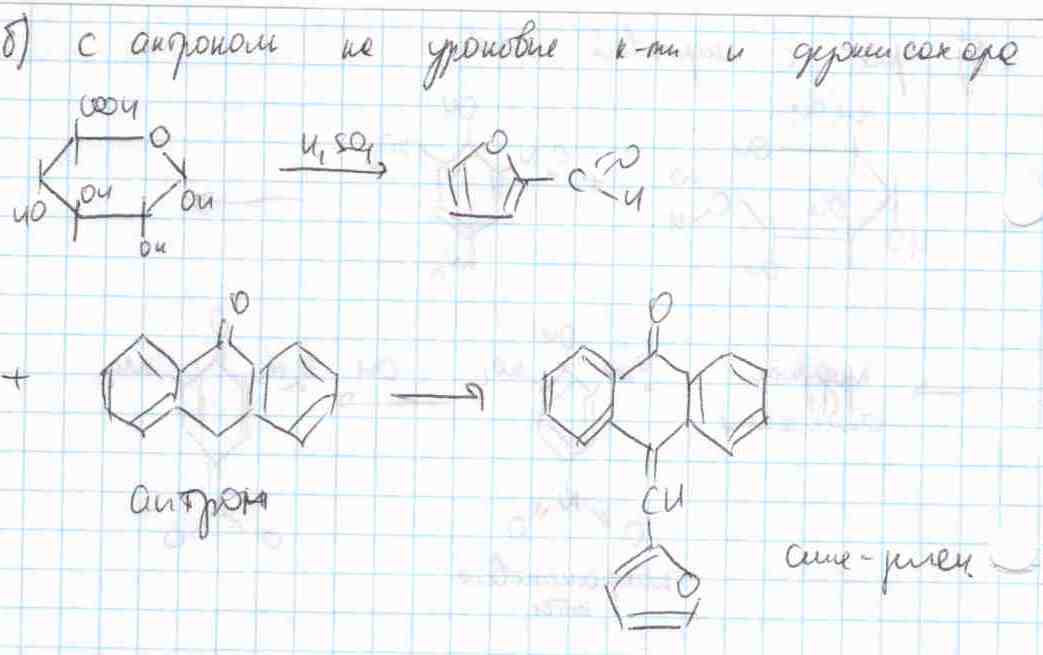 б) с антроном на уроновые к-ты и др. моносахара
COOH
O
HO OH OH
OH
H₂SO₄
O
C O
H
O
+
антрон
O
CH
O
сине-зелен